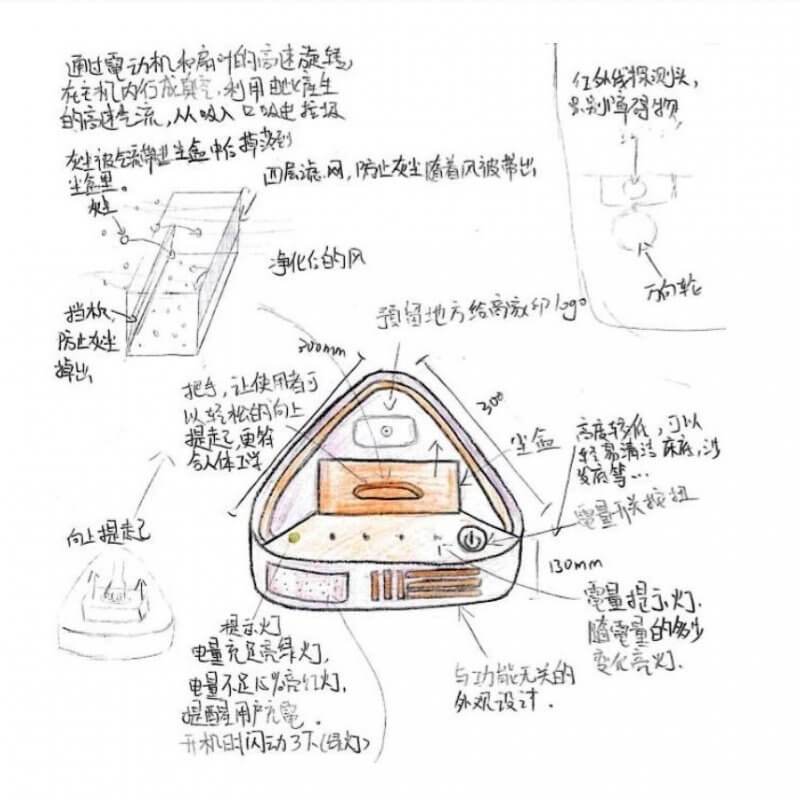 通过電动机和扇叶的高速旋转,
在主机内行成真空,利用由此產生
的高速气流,从吸入口吸进垃圾
灰尘被气流带进尘盒中后掉落到
尘盒里。
灰尘
四层滤网,防止灰尘随着风被带出
净化后的风
挡板,
防止灰尘
掉出
红外线探测头,
识别障碍物,
万向轮
預留地方给商家印logo
300mm
300
把手,让使用者可
以轻松的向上
提起,更符
合人体工学
尘盒
高度较低,可以
轻易清洁床底,沙
发底等…
電量开关按钮
向上提起
130mm
電量提示灯.
随電量的多少
变化亮灯.
提示灯
电量充足亮绿灯,
电量不足15%亮红灯,
提醒用户充電.
开机时闪动3下(绿灯)
与功能无关的
外观设计.